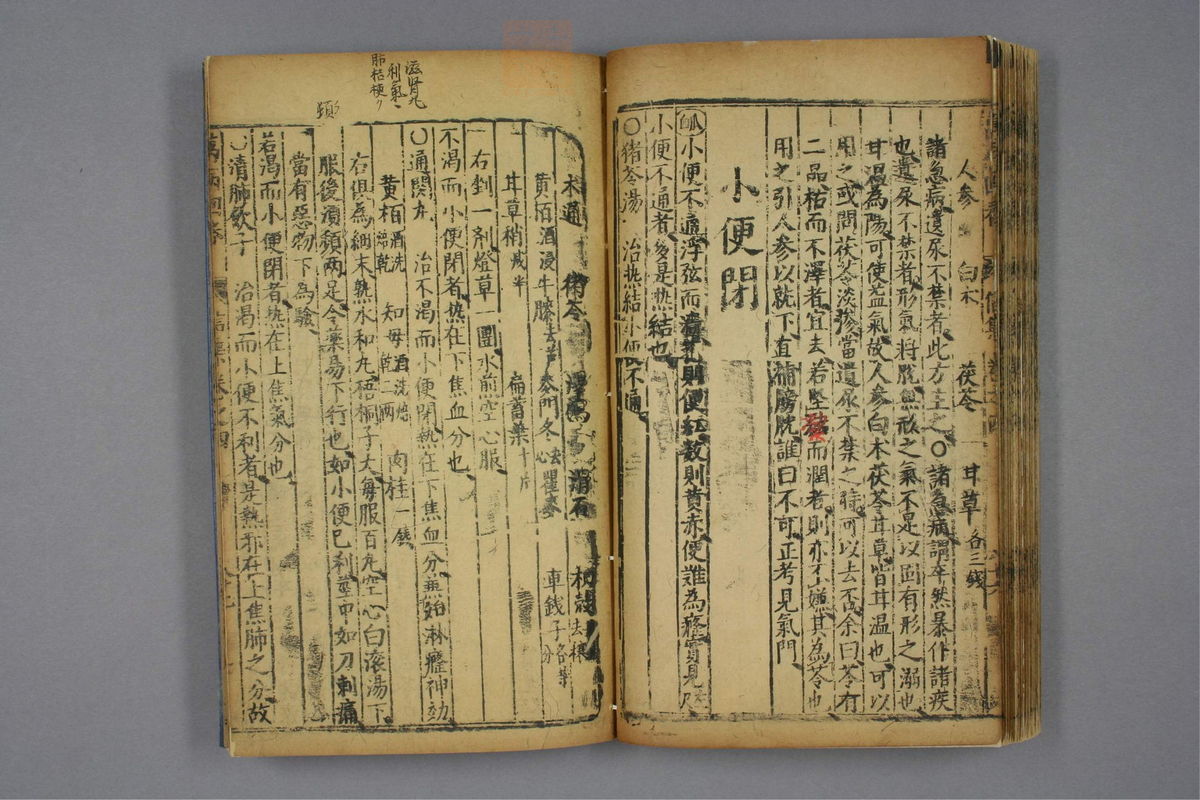 人參　白朮　茯苓　甘草各三錢
諸急病遺尿不禁者此方主之〇諸急病謂卒然暴仆諸疾
也遺尿不禁者形氣將脫無形之氣不足以固有形之溺也
甘溫為陽可使益氣故人參白朮茯苓甘草皆甘溫也可以
用之或問茯苓淡滲當遺尿不禁之時可以去否余曰苓有
二品枯而不澤者宜去若堅而潤者則亦不嫌其為苓也
用之引人參以就下直補膀胱誰曰不可正考見氣門
小便閉
小便不通浮弦而濇芤則便紅數則黃赤便難為癃實見
小便不通者多是熱結也
〇猪苓湯　治热結小便不通
木通　猪苓　澤瀉　滑石　枳殼去穰
黃栢酒浸　牛膝去芦　麥門冬去心　瞿麥　車錢子各等分
甘草梢减半　扁蓄葉十片
右剉一剤燈草一團水煎空心服
不渴而小便閉者热在下焦血分也
〇通関丸　治不渴而小便閉熱在下焦血分無如淋癃神効
黃栢酒洗焙乾　知母酒洗焙乾二兩　肉桂一錢
右俱為細末熱水和丸梧桐子大每服百丸空心白滚湯下
服後須頻兩足令藥易下行也如小便已利莖中如刀刺痛
當有惡物下為驗
若渴而小便閉者熱在上焦氣分也
〇清肺飲子　治渴而小便不利者是熱邪在上焦肺之分故
滋肾丸
利氣
肺桔梗
頓